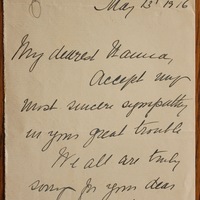 May 13th 1916
My dearest Hanna,
Accept my
most sincere sympathy
in your great trouble
We all are truly
sorry for your dear